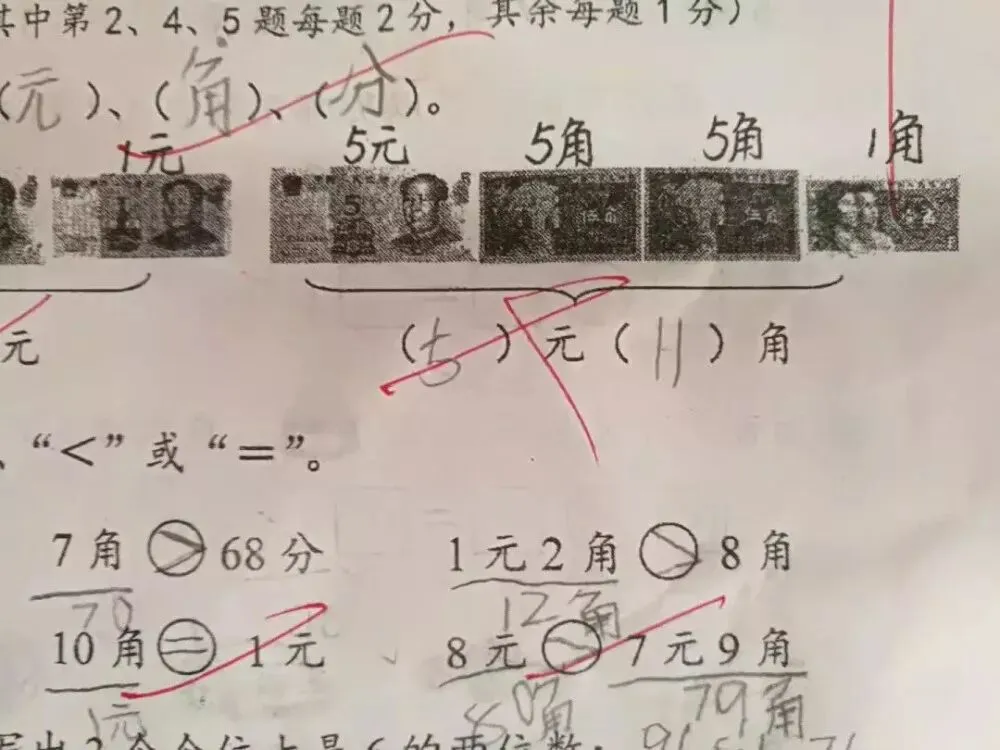 其中第2、4、5题每题2分，其余每题1分）
（元）、（角）、（分）。
1元 5元 5角 5角 1角
5 伍角 伍角
元 （5）元（11）角
、“<”或“=”。
7角 > 68分 1元2角 > 8角
70 12角
10角 = 1元 8元 > 7元9角
1元 80角 79角